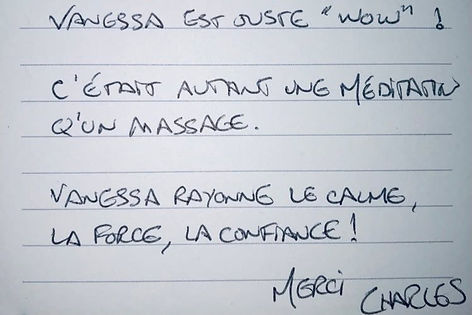 VANESSA EST JUSTE "WOW" !
C'ÉTAIT AUTANT UNE MÉDITATION
Q'UN MASSAGE.
VANESSA RAYONNE LE CALME,
LA FORCE, LA CONFIANCE !
MERCI CHARLES